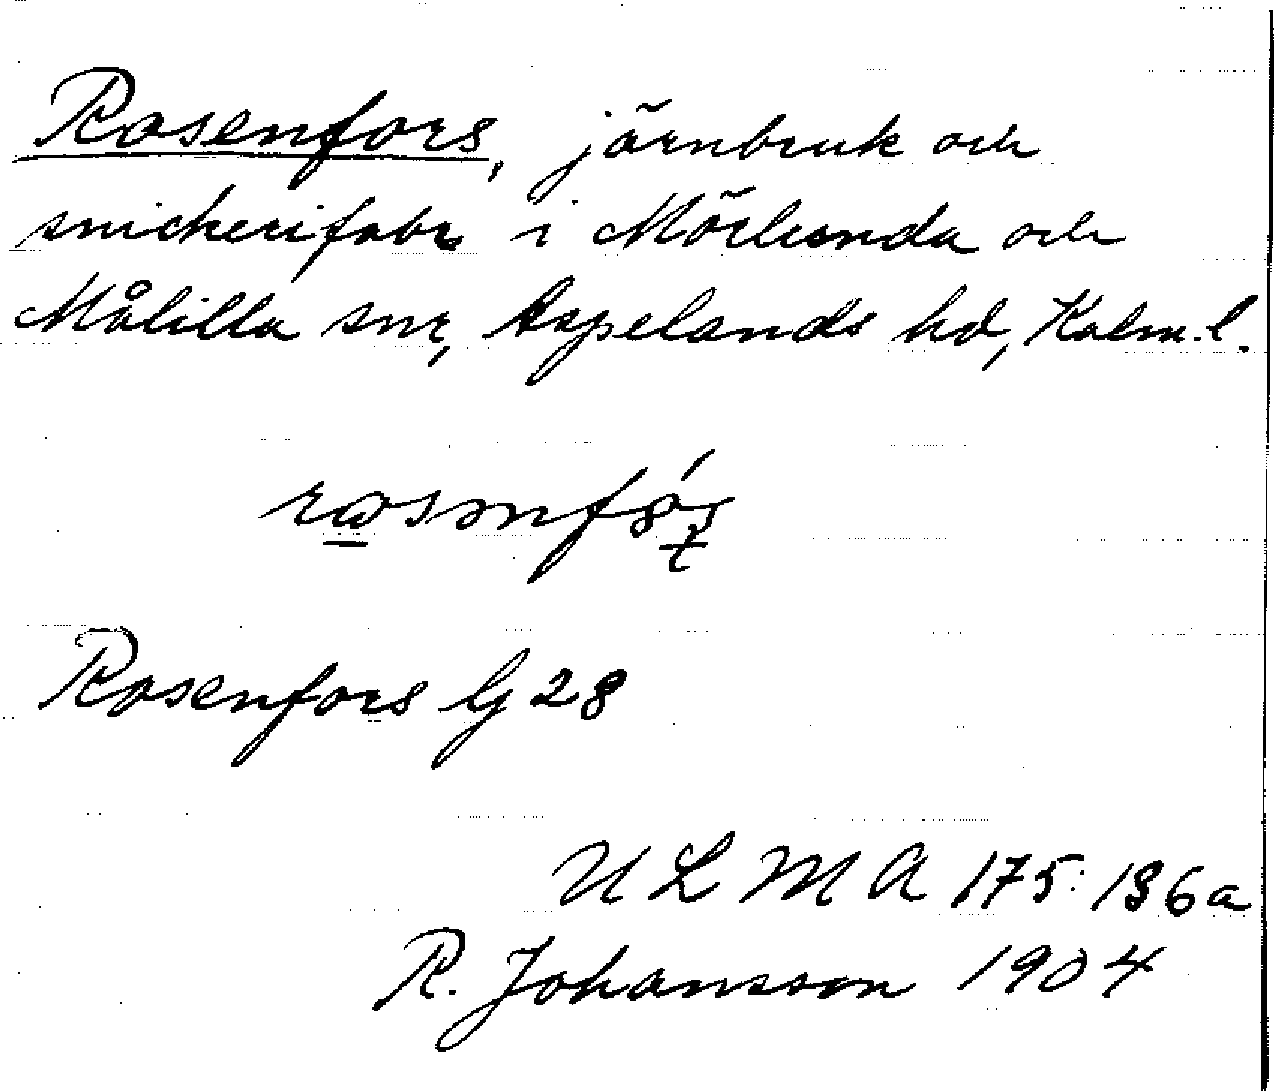 Rosenfors, järnbruk och
snickerifabr. i Mörlunda och
Målilla snr, Aspelands hd, Kalm. l.
Rosenfors G 28
U L M A 175:136a
R. Johansson 1904